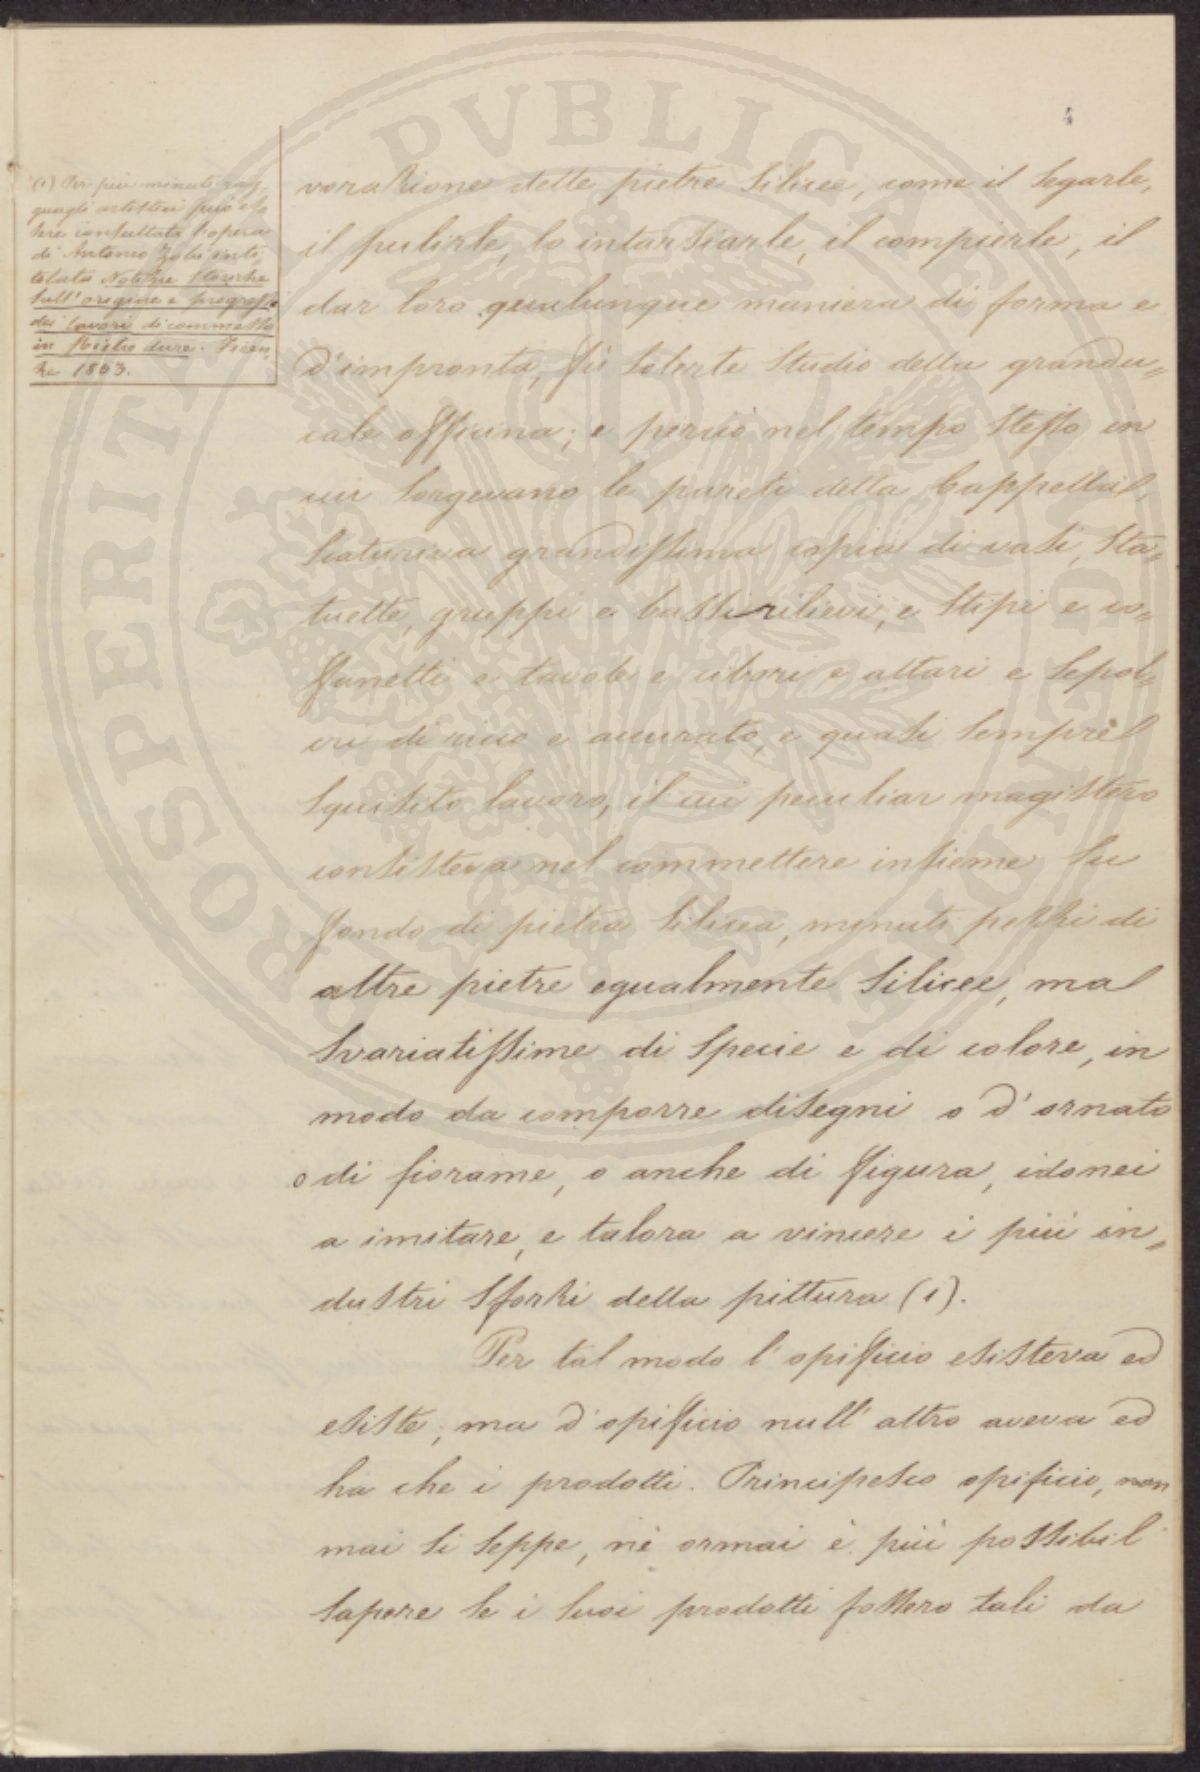 (1) Per più minuti rag-
guagli artistici può es-
sere consultata l'opera
di Antonio Zobi inti-
tolata Notizie storiche
sull'origine e progressi
dei lavori di commesso
in pietre dure. Firen-
ze 1853.
vorazione delle pietre silicee, come il segarle,
il pulirle, lo intarsiarle, il compierle, il
dar loro qualunque maniera di forma e
d'impronta, fù solerte studio della grandu=
cale officina; e perciò nel tempo stesso in
cui sorgevano le pareti della Cappella
scaturiva grandissima copia di vasi, sta=
tuette, gruppi e bassirilievi, e stipi e co=
fanetti e tavole e cibori e altari e sepol=
cri di ricco e accurato, e quasi sempre
squisito lavoro, il cui peculiar magistero
consisteva nel commettere insieme su
fondo di pietra silicea, minuti pezzi di
altre pietre egualmente silicee, ma
svariatissime di specie e di colore, in
modo da comporre disegni o d'ornato
o di fiorame, o anche di figura, idonei
a imitare, e talora a vincere i più in=
dustri sforzi della pittura (1).
Per tal modo l'opificio esisteva ed
esiste; ma d'opificio null'altro aveva ed
ha che i prodotti. Principesco opificio, non
mai si seppe, nè ormai è più possibil
sapere se i suoi prodotti fossero tali da
PROSPERITATI PVBLICAE AVGENDAE